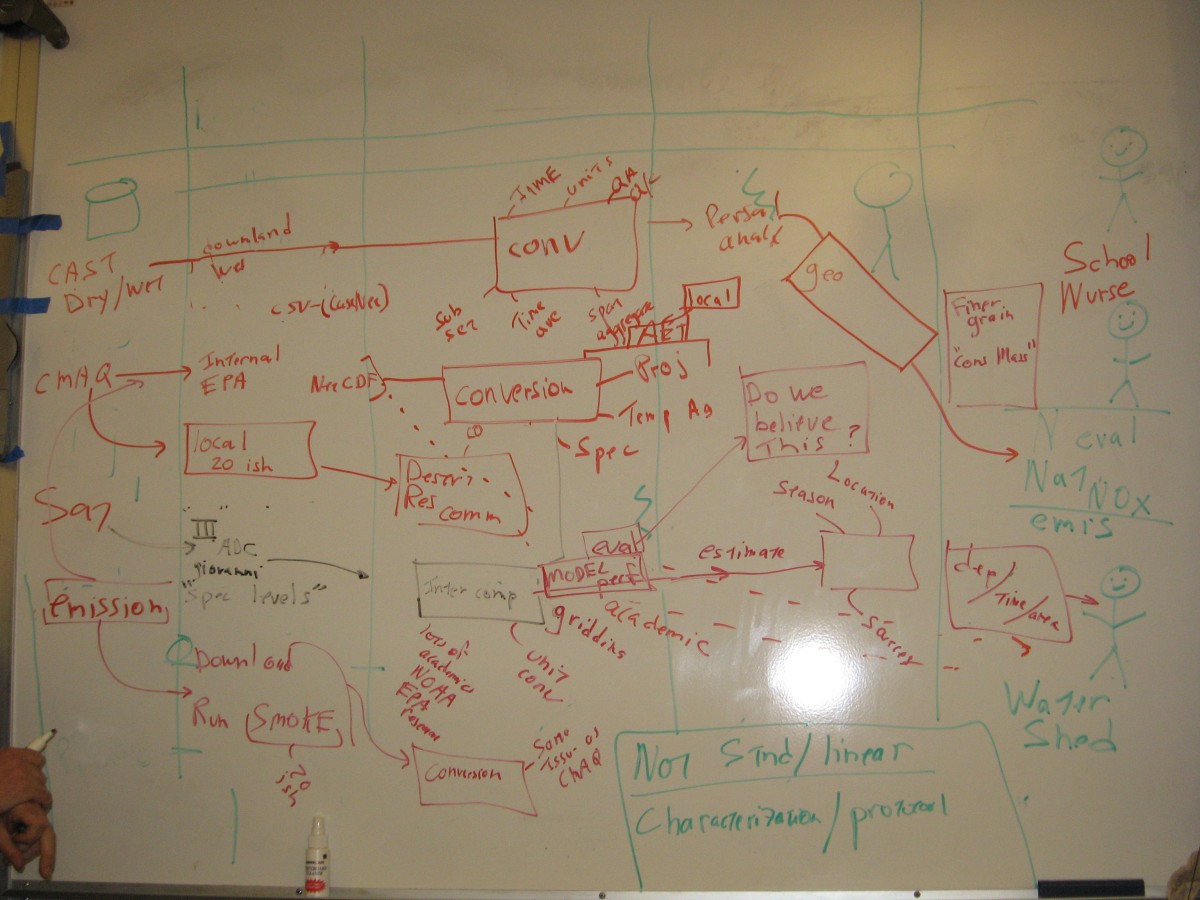 TIME
units
conv
Download
Wet
CAST
Dry/Wet
CSV-(CastNet)
Sub
set
Time
ave
span
aggregate
local
Persnl
analx
geo
School
Nurse
Finer
grain
"Cons Mass"
CMAQ
Internal
EPA
NetCDF
Conversion
Proj
Temp Ag
Spec
local
20 ish
Descri
Res
comm
Do we
believe
This ?
eval
Nat NOx
emis
Season
Location
III
ADC
Giovanni
"Spec levels"
emission
Inter comp
eval
MODEL
perf
estimate
academic
gridding
unit
conv
dep/
Time/area
lots of
academics
NOAA
EPA
Download
Run
SMOKE
20
ish
Conversion
Same
issue as
CMAQ
Water
Shed
Not Stnd/linear
Characterization/protocol